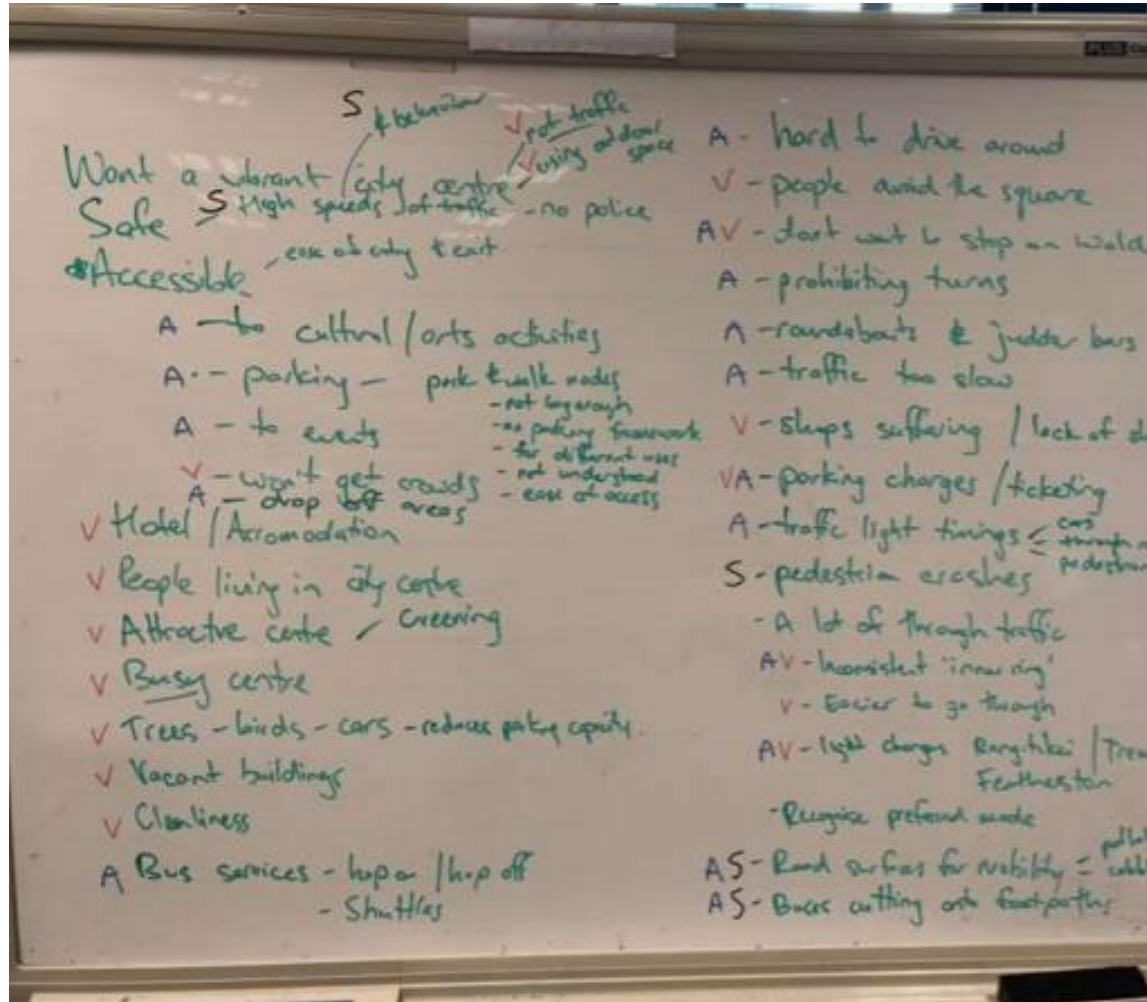 S & behaviour
V not traffic
V using outdoor space
Want a vibrant city centre
Safe S High speeds of traffic - no police
Accessible ease of entry & exit
A - to cultural / arts activities
A - parking - park & walk nodes
- not long enough
- no parking framework
A - to events
- for different uses
V - won't get crowds - not understood
A - drop off areas - ease of access
V Hotel / Accomodation
V People living in city centre
V Attractive centre / Greening
V Busy centre
V Trees - birds - cars - reduces parking capacity.
V Vacant buildings
V Cleanliness
A Bus services - hop on / hop off
- Shuttles
PLUS
A - hard to drive around
V - people avoid the square
AV - don't want to stop
A - prohibiting turns
A - roundabouts & judder bars
A - traffic too slow
V - shops suffering / lack of
VA - parking charges / ticketing
A - traffic light timings cars
through
S - pedestrian crashes
- A lot of through traffic
AV - Inconsistent 'inner ring'
V - Easier to go through
AV - light changes Rangitikei /
Featherston
- Recognise preferred mode
AS - Road surfaces for mobility
AS - Buses cutting onto footpaths